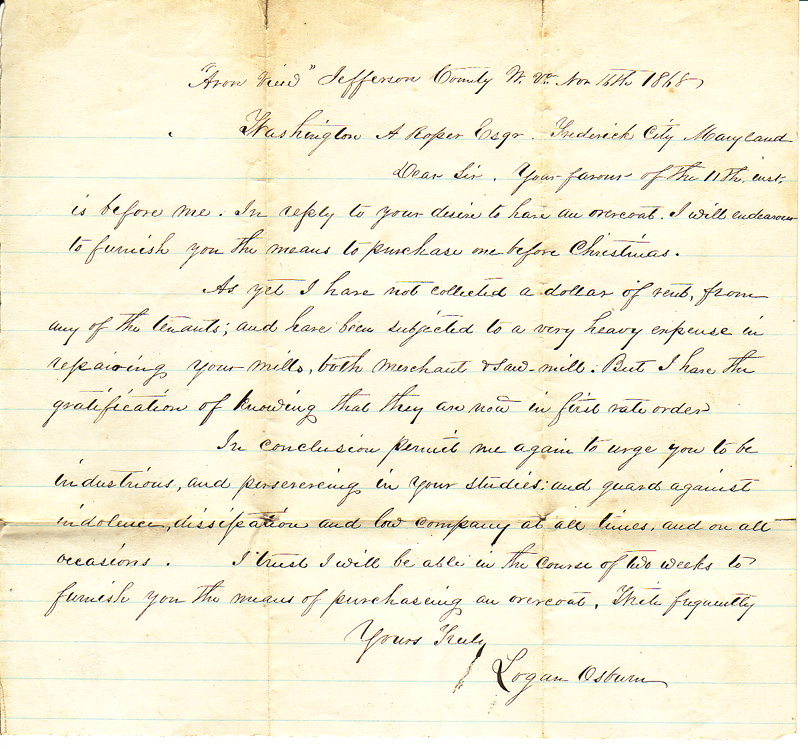 "Avon View" Jefferson County W. Va. Nov 16th 1868,
Washington A Roper Esqr. Frederick City Maryland
Dear Sir. Your favour of the 11th. inst.
is before me. In reply to your desire to have an overcoat. I will endeavour
to furnish you the means to purchase one before Christmas.
As yet I have not collected a dollar of rent, from
any of the tenants; and have been subjected to a very heavy expense in
repairing your mills, both merchant & saw-mill. But I have the
gratification of knowing that they are now in first rate order
In conclusion permit me again to urge you to be
industrious, and persevereing in your studies: and guard against
indolence, dissipation and low company at all times, and on all
occasions. I trust I will be able in the course of two weeks to
furnish you the means of purchaseing an overcoat. Write frequently
Yours Truly
Logan Osburn